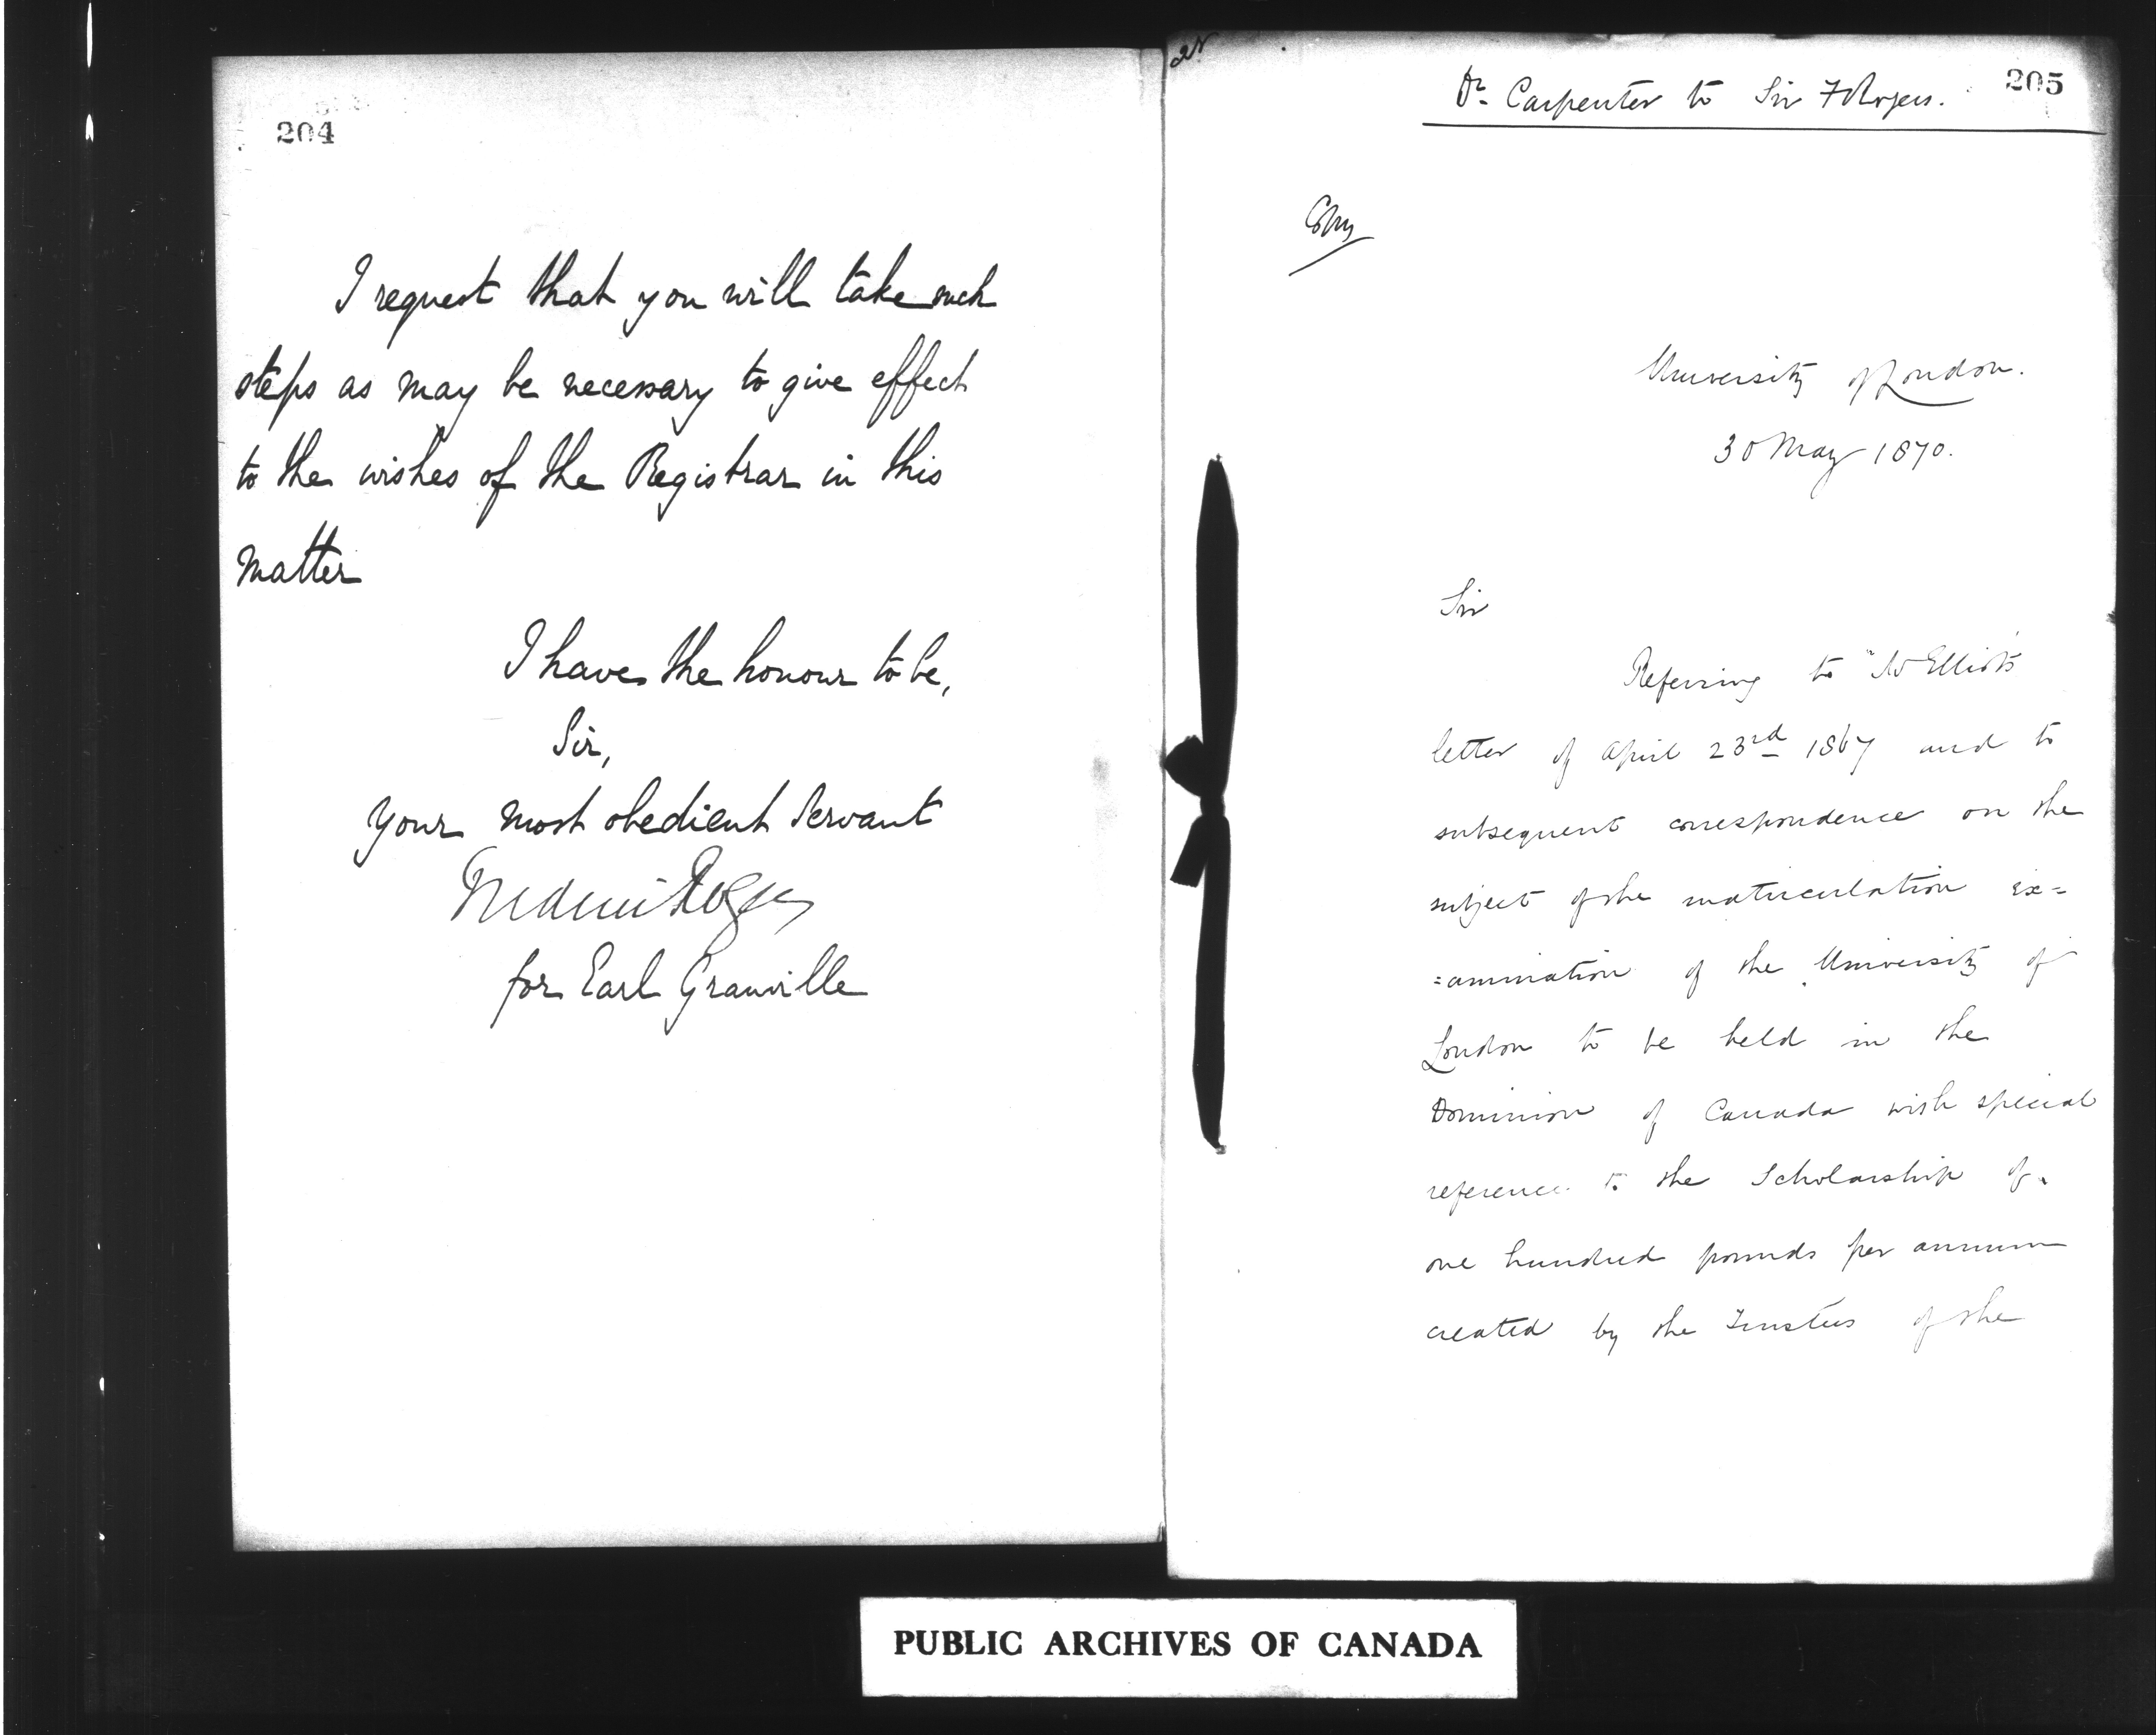 204
I request that you will take such
steps as may be necessary to give effect
to the wishes of the Registrar in this
matter
I have the honour to be,
Sir,
Your most obedient Servant
Frederic Rogers
for Earl Granville
205
Dr Carpenter to Sir F Rogers.
Copy
University of London.
30 May 1870.
Sir
Referring to Elliot's
letter of April 23rd 1867 and to
subsequent correspondence on the
subject of the matriculation ex=
=amination of the University of
London to be held in the
Dominion of Canada with special
reference to the Scholarship of
one hundred pounds per annum
created by the Trustees of the
PUBLIC ARCHIVES OF CANADA